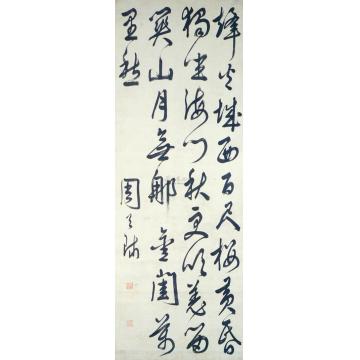 烽火城西百尺樓黃昏
獨坐海風秋更吹羌笛
關山月無那金閨萬
里愁
周天球